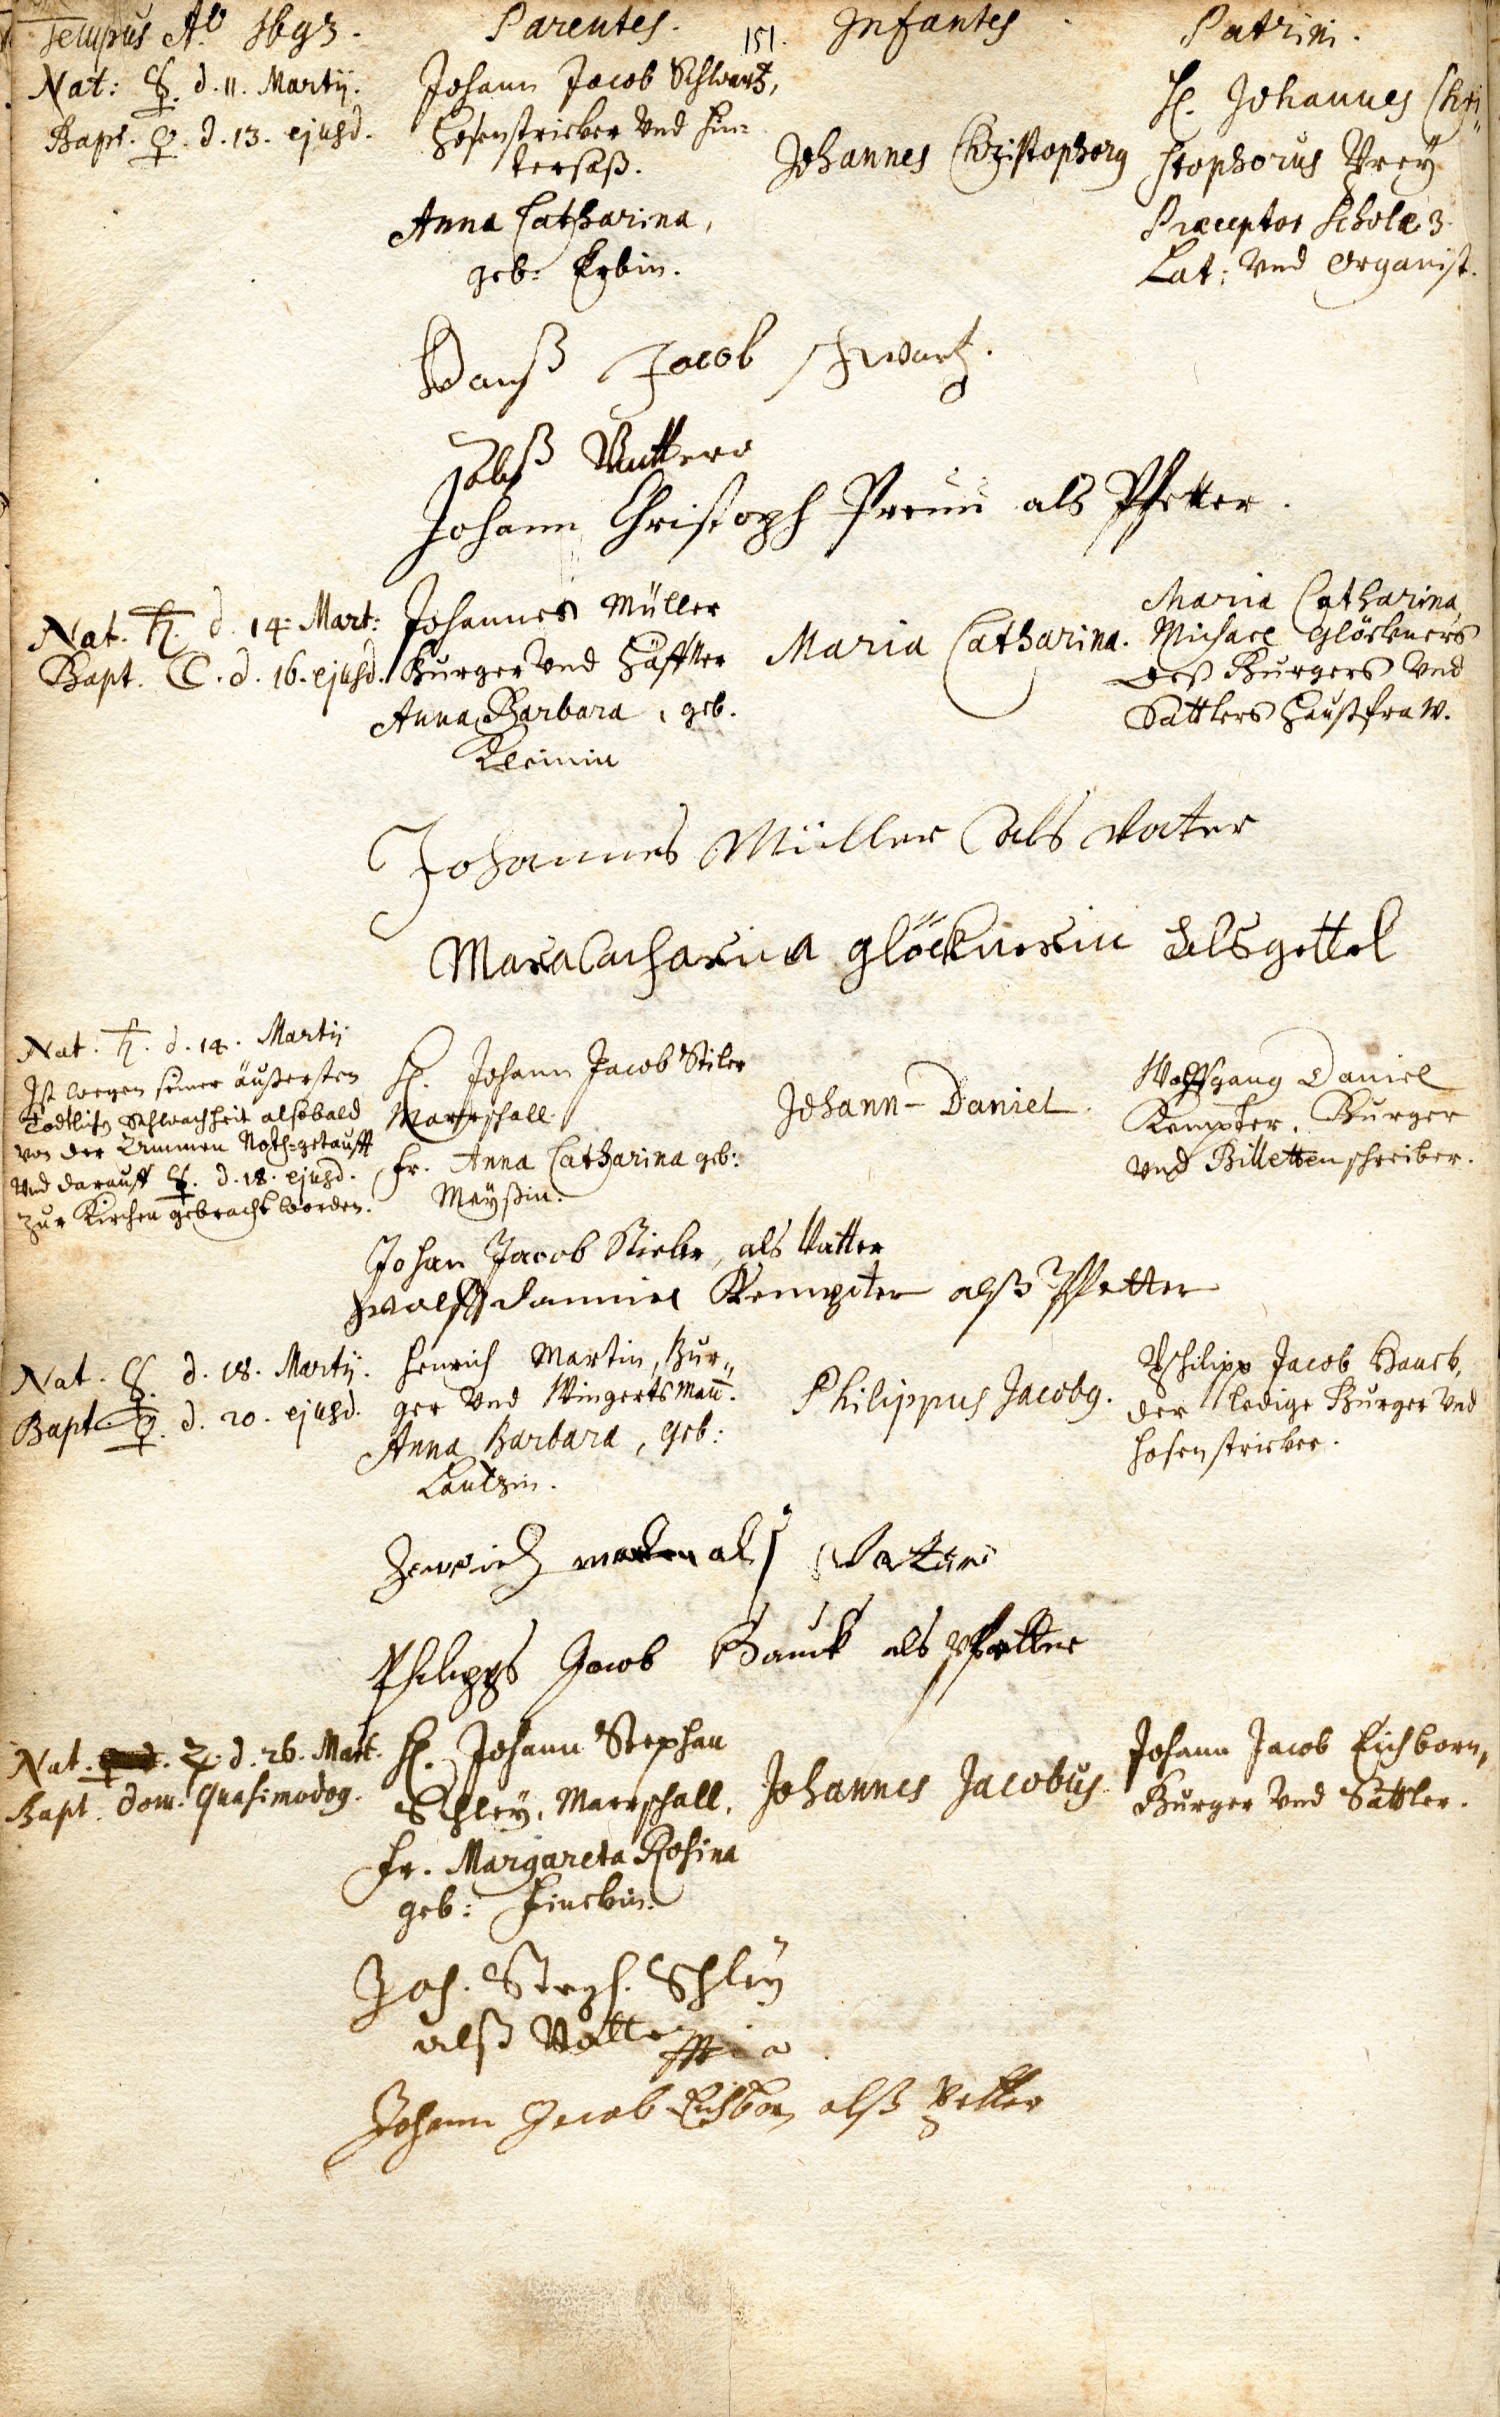 Tempus Aᵒ 1693.
Parentes.
151.
Infantes
Patrini.
Nat: ☿. d. 11. Martij.
Bapt. ♀. d. 13. ejusd.
Johann Jacob Schwartz,
Hosenstricker und Hin-
tersaß.
Anna Catharina,
geb: Erbin.
Johannes Christophorg
H. Johannes Chri„
stophorus Vrey
Præceptor Scholæ 3.
Lat: und Organist.
Hanß Jacob schwartz.
Johann Christoph als Pfetter.
Nat. ♄. d. 14. Mart:
Bapt. ☾. d. 16. ejusd.
Johannes Müller
Burger und Häffner
Anna Barbara, geb.
Kleinin
Maria Catharina.
Maria Catharina,
Michael Glöckners
deß Burgers und
Sattlers Haußfraw.
Johannes Müller als vater
glöcknerin als gettel
Nat. ♄. d. 14. Martij
Ist wegen seiner äußersten
Todtlichen Schwachheit alsobald
von der Ammen Noth-getaufft
und darauff ☿. d. 18. ejusd.
zur Kirchen gebracht worden.
H. Johann Jacob Stiler
Marschall.
Fr. Anna Catharina geb:
Meyßin.
Johann-Daniel.
Wolffgang Daniel
Kempter, Burger
und Billettenschreiber.
Johan Jacob Stieler, als Vatter
wolff danniel Kempter alß Pfetter
Nat. ☿. d. 18. Martij.
Bapt. ♀. d. 20. ejusd.
Henrich Martin, Bur„
ger und Wingertsman̄.
Anna Barbara, geb:
Lautzin.
Philippus Jacobg.
Philipp Jacob Hauck,
der ledige Burger und
Hosenstricker.
Henrich als Vatter
Philipps Jacob Hauck als Pfetter
Nat. ♃. d. 26. Mart.
Bapt. Dom. Quasimodog.
H. Johann Stephan
Schley, Marschall.
Fr. Margareta Rosina
geb: Finckin.
Johannes Jacobus
Johann Jacob Eichborn,
Burger und Sattler.
Joh. Steph. Schley
alß Vatter
Johann Jacob Eichborn alß Petter